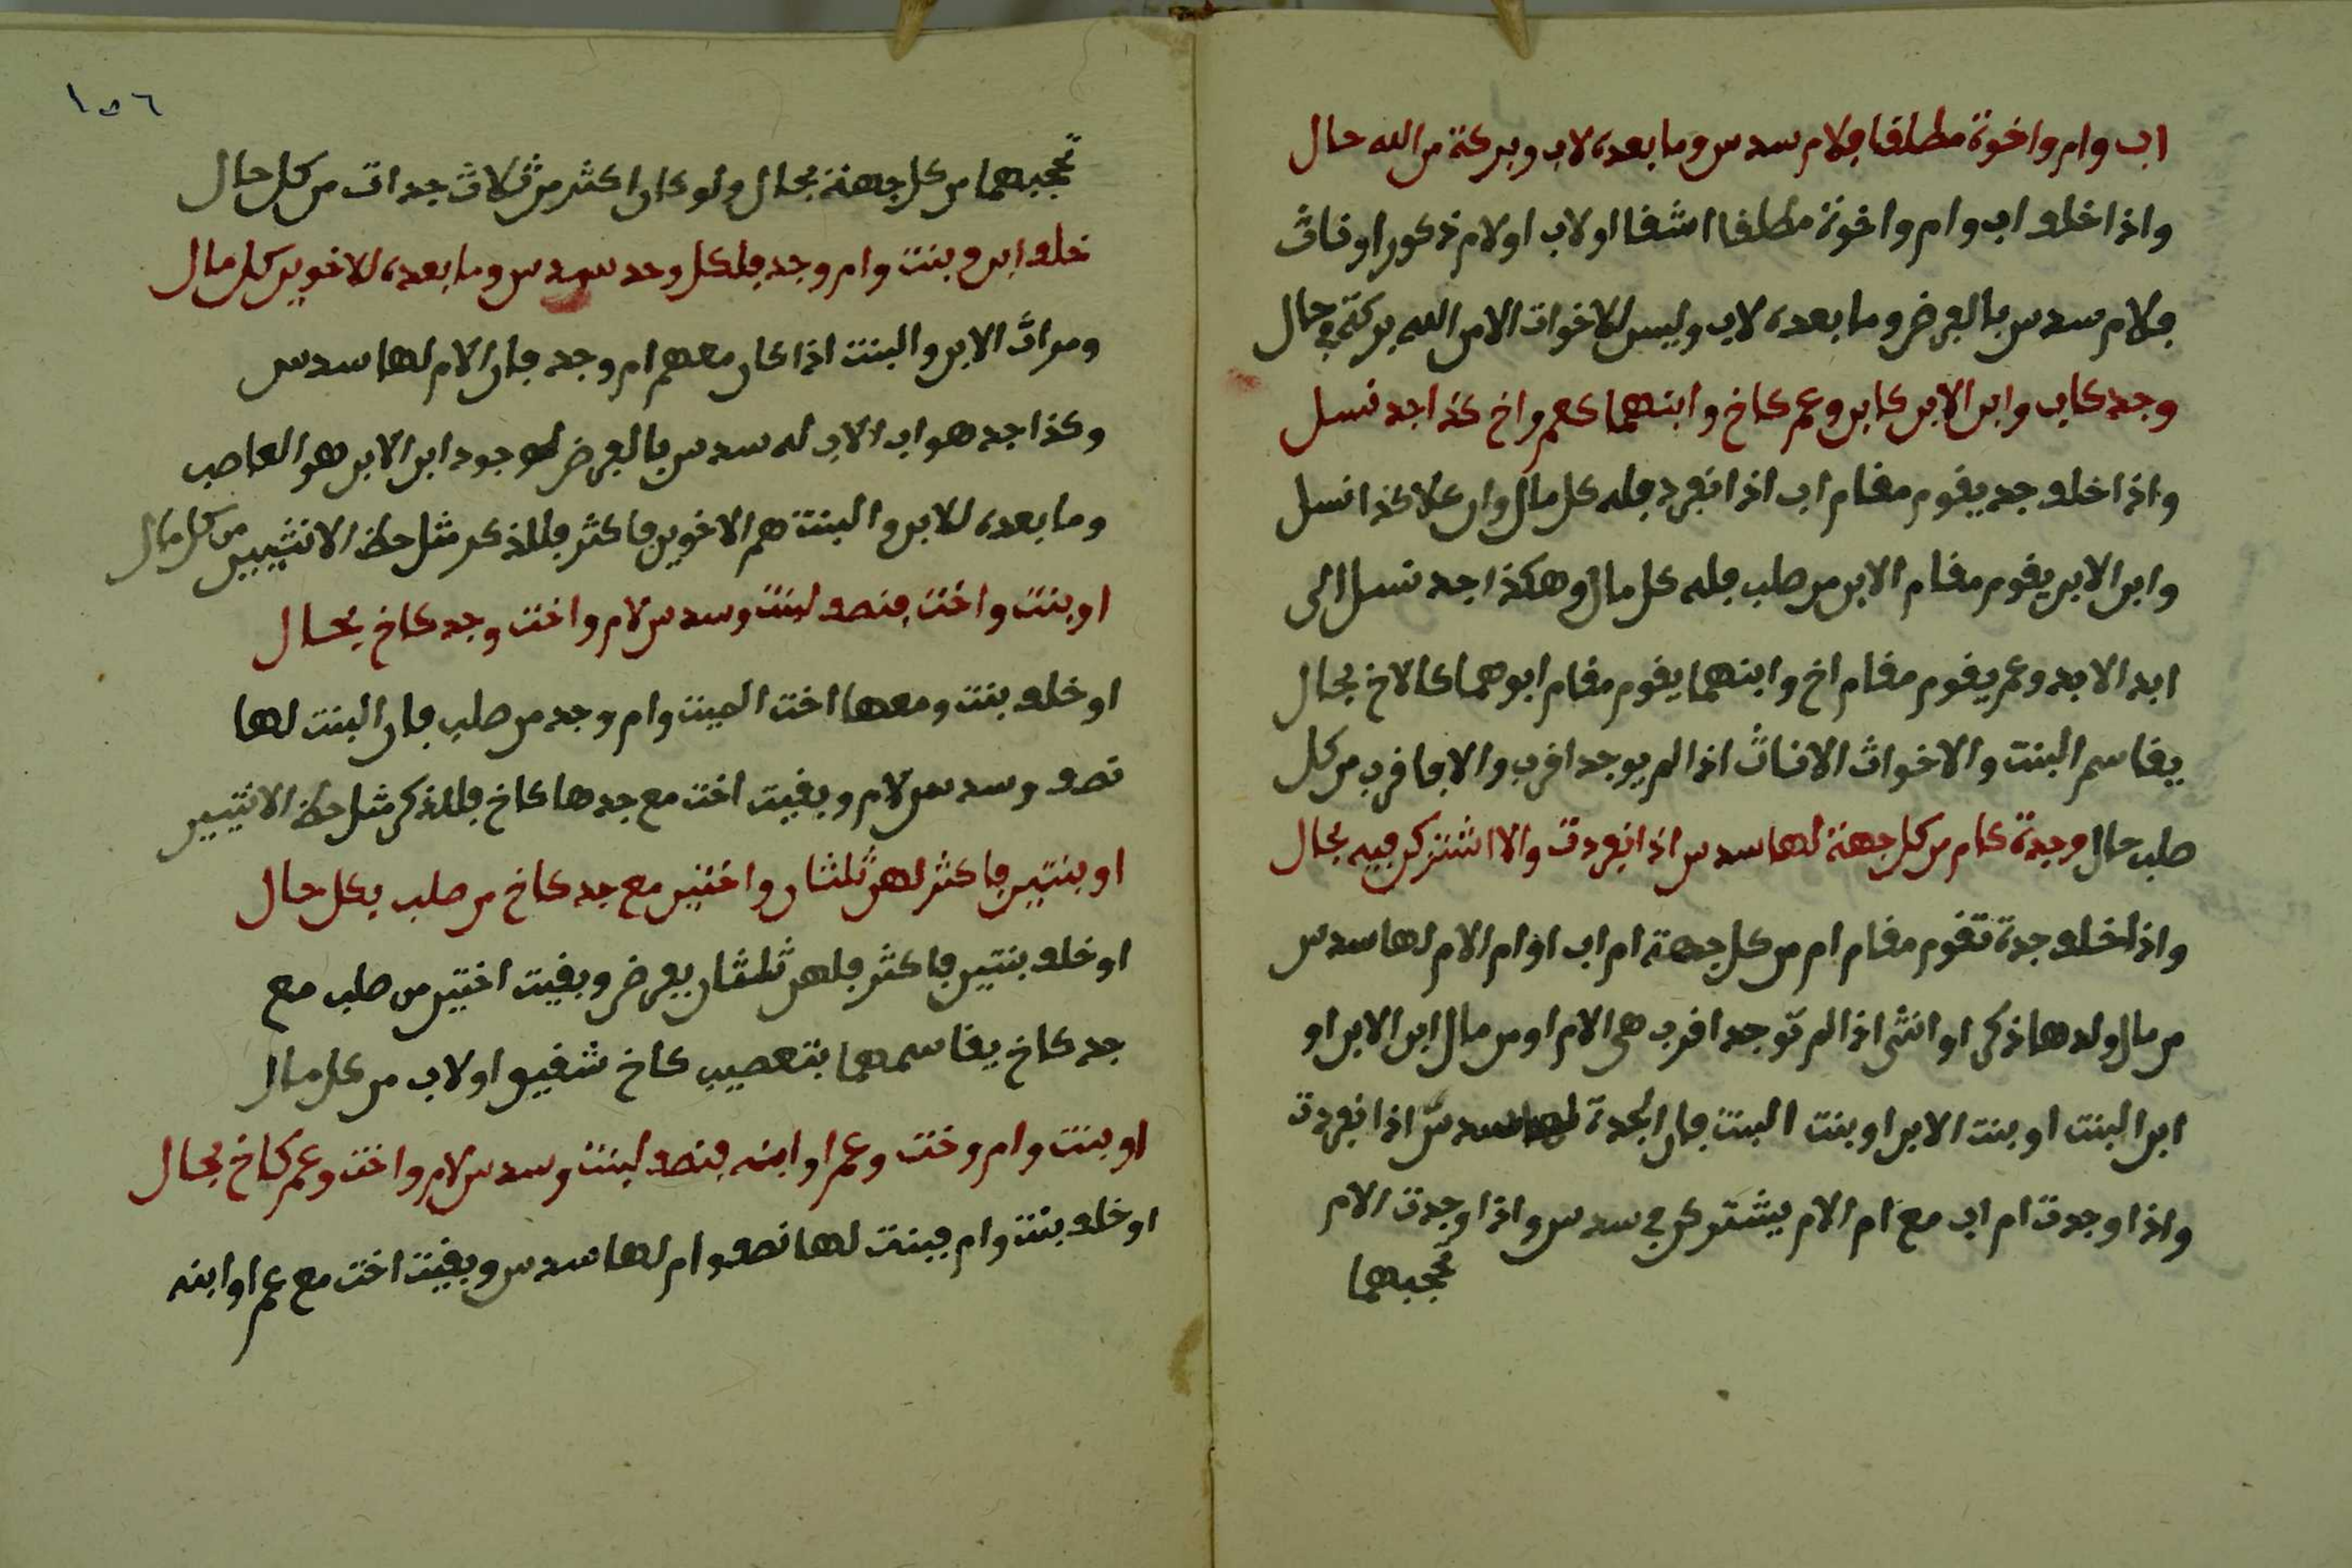 اب وام واخوة مطلقا فلام سدس وما بعده لاب وبركة من الله حال
واذا خلف اب وام واخوة مطلقا اشقا او لاب او لام ذكور او ناث
فلام سدس بالفرض وما بعده لاب وليس للاخوات الا من الله بركة في حال
وجد كاب وابن الابن كابن وعم كاخ وابنهما كعم واخ كذا جد نسل
واذا خلف جد يقوم مقام اب اذا انفرد فله كل مال وان علا كذا نسل
وابن الابن يقوم مقام الابن من صلب فله كل مال وهكذا جد نسل الى
ابد الابد وعم يقوم مقام اخ وابنهما يقوم مقام ابوهما كالاخ بحال
يقاسم البنت والاخوات الاناث اذا لم يوجد اقرب والا فاقرب من كل
صلب حال وجدة كام من كل جهة لها سدس اذا انفردت والا اشتركن فيه بحال
واذا خلف جدة تقوم مقام ام من كل جهة ام اب او ام الام لها سدس
من مال ولدها ذكر او انثى اذا لم توجد اقرب هي الام او من مال ابن الابن او
ابن البنت او بنت الابن او بنت البنت فان الجدة لها سدس اذا انفردت
واذا وجدت ام اب مع ام الام يشتركن في سدس واذا وجدت الام
تحجبهما
١٥٦
تحجبهما من كل جهة بحال ولو كان اكثر من ثلاث جدات من كل حال
خلف ابن وبنت وام وجد فلكل وحد سدس وما بعده للاخوين كل مال
ومراث الابن والبنت اذا كان معهم ام وجد فان الام لها سدس
وكذا جد هو اب الاب له سدس بالفرض لوجود ابن الابن هو العاصب
وما بعده للابن والبنت هم الاخوين فاكثر فللذكر مثل حظ الانثيين من كل مال
او بنت واخت فنصف لبنت وسدس لام واخت وجد كاخ بحال
او خلف بنت ومعها اخت الميت وام وجد من صلب فان البنت لها
نصف وسدس لام وبقيت اخت مع جدها كاخ فللذكر مثل حظ الانثيين
او بنتين فاكثر لهن ثلثان واختين مع جد كاخ من صلب بكل حال
او خلف بنتين فاكثر فلهن ثلثان بفرض وبقيت اختين من صلب مع
جد كاخ يقاسمهما بتعصيب كاخ شقيق او لاب من كل مال
او بنت وام وخت وعم او ابنه فنصف لبنت وسدس لام واخت وعم كاخ بحال
او خلف بنت وام فبنت لها نصف وام لها سدس وبقيت اخت مع عم او ابنه